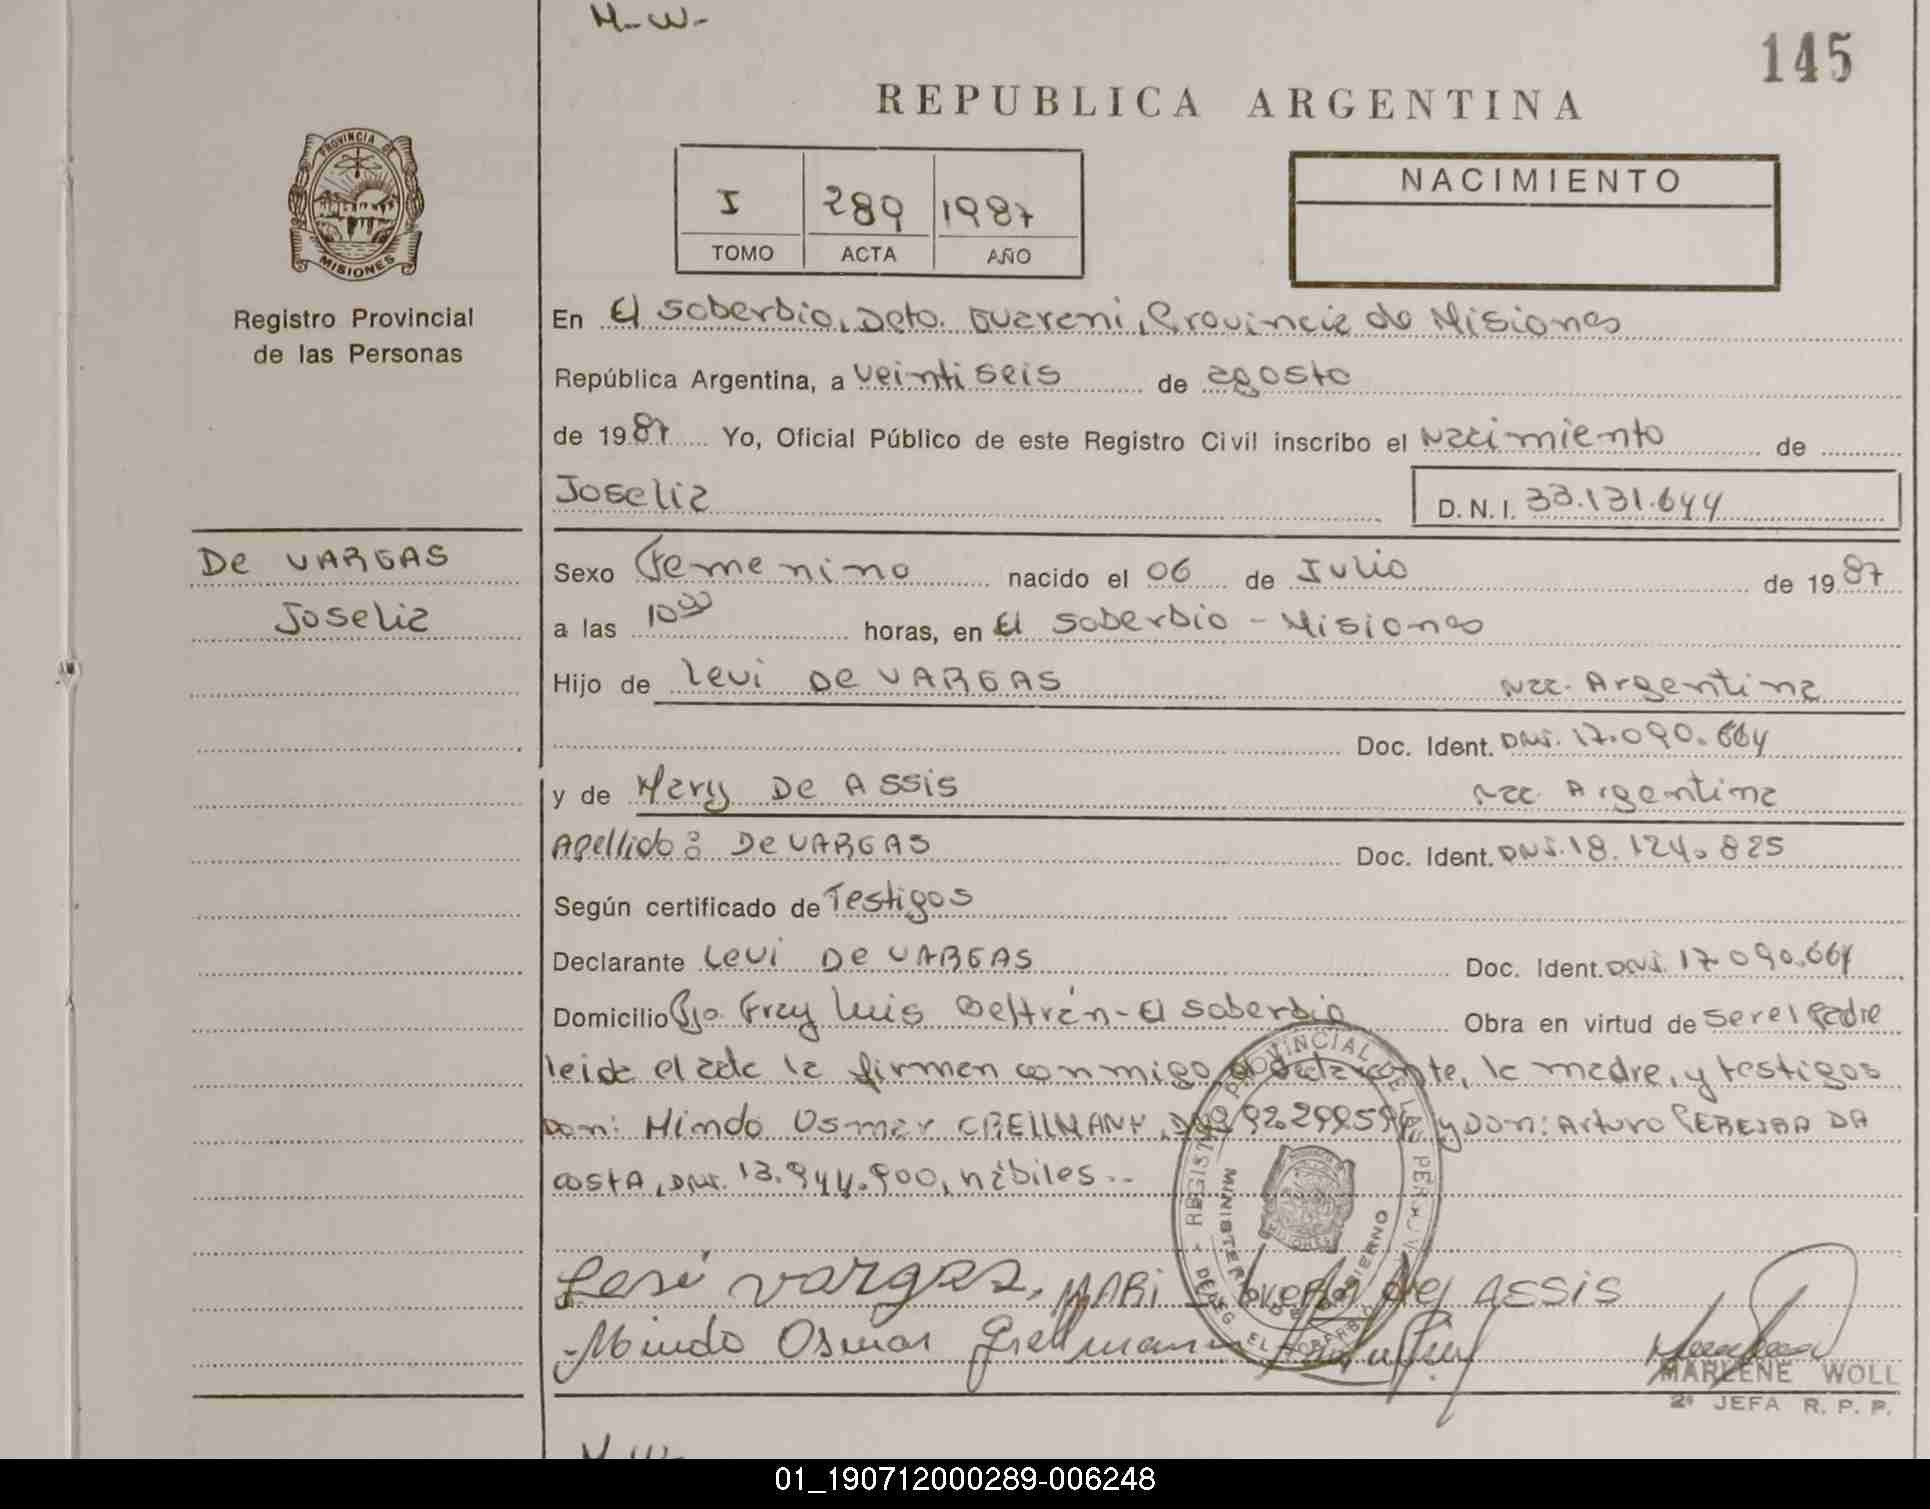 M-W-
145
REPUBLICA ARGENTINA
PROVINCIA DE
MISIONES
I 289 1987
TOMO ACTA AÑO
NACIMIENTO
Registro Provincial
de las Personas
En El Soberbio, Dpto. Guarani, Provincia de Misiones
República Argentina, a veintiseis de agosto
de 1987 Yo, Oficial Público de este Registro Civil inscribo el Nacimiento de
Joselia
D.N.I. 33.131.644
De VARGAS
Joselia
Sexo Femenino nacido el 06 de Julio de 1987
a las 10 00 horas, en El Soberbio - Misiones
Hijo de Levi De VARGAS Nac. Argentina
Doc. Ident. DNI. 17.090.664
y de Mary De Assis Nac. Argentina
Apellido: De VARGAS Doc. Ident. DNI. 18.124.825
Según certificado de Testigos
Declarante Levi De VARGAS Doc. Ident. DNI. 17.090.664
Domicilio Pje. Fray Luis Beltrán - El Soberbio Obra en virtud de ser el Padre
leida el acta la firman conmigo el declarante, la madre, y testigos
Don: Mindo Osmar GRELLMANN, DNI 92.299594 y Don: Arturo PEREIRA DA
COSTA, DNI. 13.944.900, hábiles..
REGISTRO PROVINCIAL DE LAS PERSONAS
MINISTERIO DE GOBIERNO
EL SOBERBIO
vargas, MARi de ASSiS
Mindo Osmar Grellmann
MARLENE WOLL
2ª JEFA R. P. P.
M-W-
01_190712000289-006248